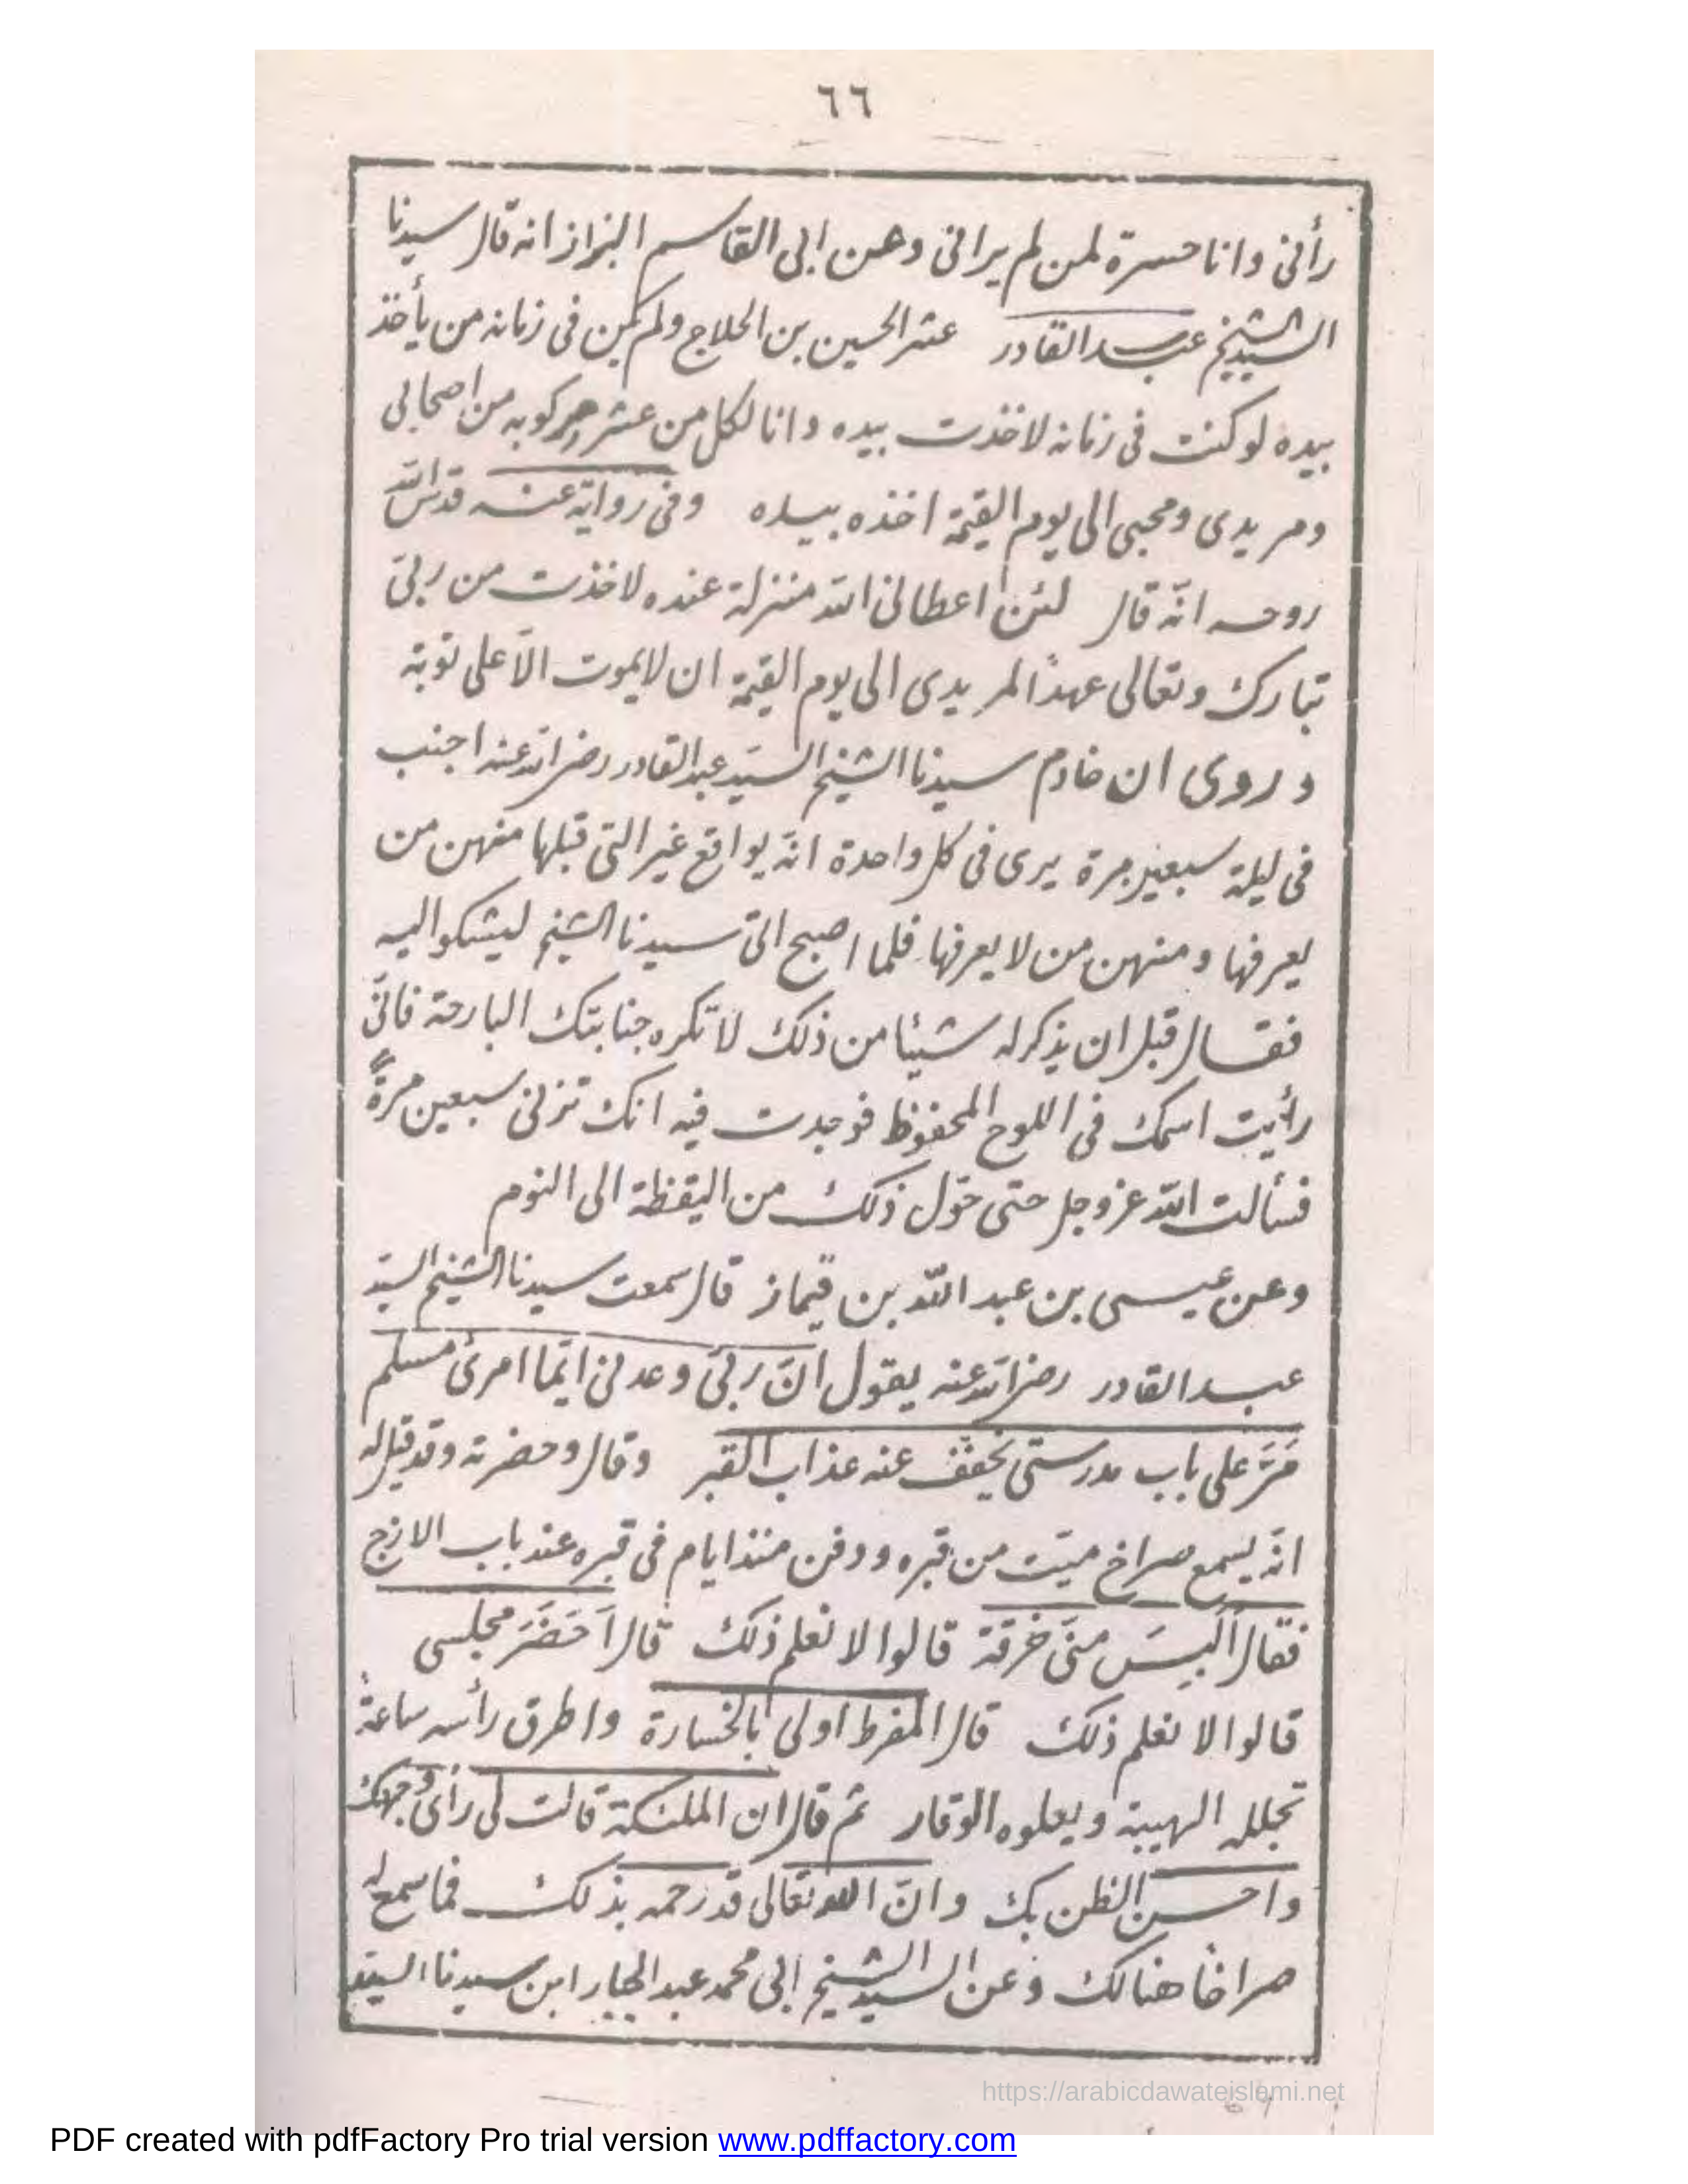 ٦٦
رأنى وانا حسرة لمن لم يرانى وعن ابى القاسم البزاز انه قال سيدنا
السيد الشيخ عبد القادر عثر الحسين بن الحلاج ولم يكن فى زمانه من يأخذ
بيده لو كنت فى زمانه لاخذت بيده وانا لكل من عثر مركوبه من اصحابى
ومريدى ومحبى الى يوم القيمة اخذه بيده وفى رواية عنه قدس الله
روحه انّه قال لئن اعطانى الله منزلة عنده لاخذت من ربّى
تبارك وتعالى عهدًا لمريدى الى يوم القيمة ان لا يموت الّا على توبة
وروى ان خادم سيدنا الشيخ السيّد عبد القادر رضى الله عنه اجنب
فى ليلة سبعين مرة يرى فى كل واحدة انّه يواقع غير التى قبلها منهن من
يعرفها ومنهن من لا يعرفها فلما اصبح اتى سيدنا الشيخ ليشكو اليه
فقال قبل ان يذكر له شيئا من ذلك لا تكره جنابتك البارحة فانّى
رأيت اسمك فى اللوح المحفوظ فوجدت فيه انك تزنى سبعين مرةً
فسألت الله عز وجل حتى حوّل ذلك من اليقظة الى النوم
وعن عيسى بن عبد الله بن قيماز قال سمعت سيدنا الشيخ السيّد
عبد القادر رضى الله عنه يقول انّ ربّى وعدنى ايّما امرئ مسلم
مَرَّ على باب مدرستى يخفّف عنه عذاب القبر وقال وحضرته وقد قيل له
انّه يسمع صراخ ميّت من قبره ودفن منذ ايام فى قبره عند باب الازج
فقال أَلَبِسَ منّى خرقة قالوا لا نعلم ذلك قال اَحَضَرَ مجلسى
قالوا لا نعلم ذلك قال المفرط اولى بالخسارة واطرق رأسه ساعةً
تجلله الهيبة ويعلوه الوقار ثم قال ان الملئكة قالت لى رأى وجهك
واحسن الظن بك وانّ الله تعالى قد رحمه بذلك فما سمع له
صراخًا هنالك وعن السيد الشيخ ابى محمد عبد الجبار ابن سيدنا السيّد
https://arabicdawateislami.net
PDF created with pdfFactory Pro trial version www.pdffactory.com